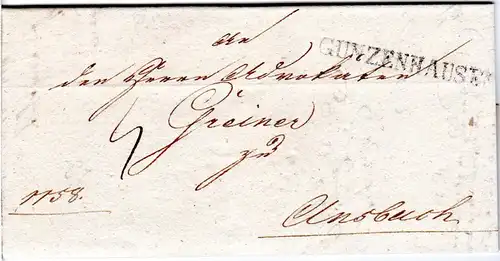 An
GUNZENHAUSEN
den Herrn Advokaten
Greiner
zu
1158.
Ansbach